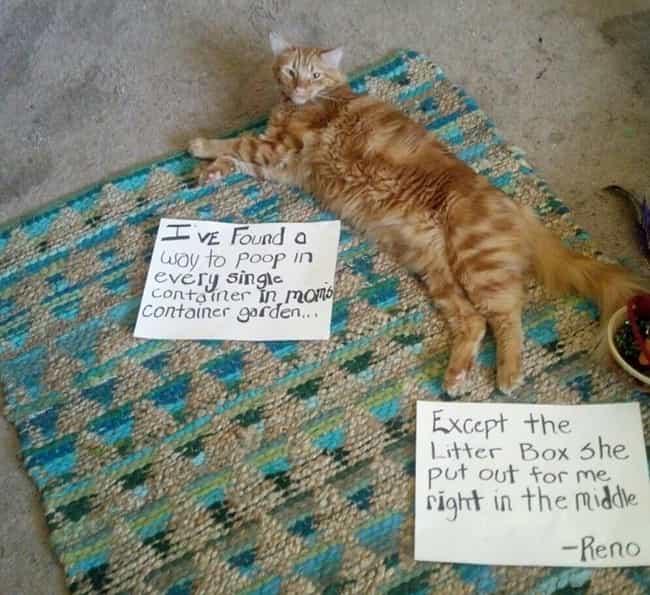 I'VE Found a
way to poop in
every single
container in mom's
container garden...
Except the
Litter Box she
put out for me
right in the middle
-Reno